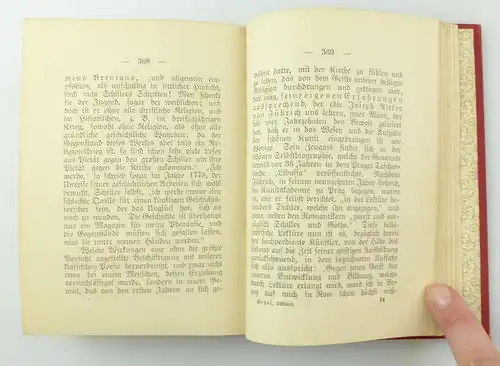 — 368 —
mens Brentano, „und allgemein em-
pfohlen, als unschuldig in sittlicher Hinsicht,
sind nun Schillers Schriften! Man schenkt
sie der Jugend, sogar der weiblichen; und
doch ist es ohne alle christliche Religion, und
im Historischen, z. B. im dreißigjährigen
Krieg, sowohl ohne Religion, als ohne alle
gründliche geschichtliche Wahrheit; da der
Gegenstand dieses Werkes aber teils ein Re-
ligionskrieg ist, so sind schon sehr viele Leser
aus Pietät gegen den großen Schiller um ihre
Pietät gegen die Kirche gekommen.“ „Ich
werde“, so schreibt sogar im Jahre 1778, der
Unreife seiner geschichtlichen Arbeiten sich wohl
bewußt, Schiller selbst, „ich werde immer eine
schlechte Quelle für einen künftigen Geschichts-
forscher sein, der das Unglück hat, sich an
mich zu wenden. Die Geschichte ist überhaupt
nur ein Magazin für meine Phantasie, und
die Gegenstände müssen sich gefallen lassen,
was sie unter meinen Händen werden.“
Welche Wirkungen eine ohne die größte
Vorsicht angestellte Beschäftigung mit unserer
klassischen Poesie hervorbringt, und zwar nicht
etwa bei einem Menschen, dessen Erziehung
vernachlässigt wurde, sondern in einem Ge-
müt, das von den ersten Jahren an sich ge-
— 369 —
wöhnt hatte, mit der Kirche zu fühlen und
zu leben, das von dem Geiste unserer heiligen
Religion durchdrungen und getragen war,
das mag, seine eigenen Erfahrungen
aussprechend, der edle Joseph Ritter
von Führich uns lehren, jener Mann, der
seit vier Jahrzehnten den Beweis geliefert
hat, daß er in das Wesen und die Aufgabe
der schönen Kunst eingedrungen ist wie
Wenige. Sein Zeugnis findet sich in der
schönen Selbstbiographie, welche der Genannte
bereits vor 36 Jahren in dem Prager Taschen-
buche „Libussa“ veröffentlichte. Nachdem
Führich, in seinem neunzehnten Jahre stehend,
die Kunstakademie zu Prag bezogen hatte,
wurde er, wie er selbst berichtet, in die Lektüre
der „verschiedenen Dichter, welche ihn anzogen“, und zwar
neben den Romantikern „zuerst und vor-
züglich Schiller und Göthe“. „Was diese
Lektüre überhaupt betrifft, so muß ich“, bezüglich derselben
der hochverdiente Künstler, von der Höhe des
Lebens auf die Zeit seiner geistigen Ausbildung
zurückschauend, in dem bezeichneten Aufsatze
sich also ausspricht: „Gegen zwei Feinde der
inneren Entwicklung und Bildung, welche
durch Lektüre erlangt wird, ward ich in Be-
zug auf mich in Rom schon höchst miß-
Wetzel, Lektüre. 24